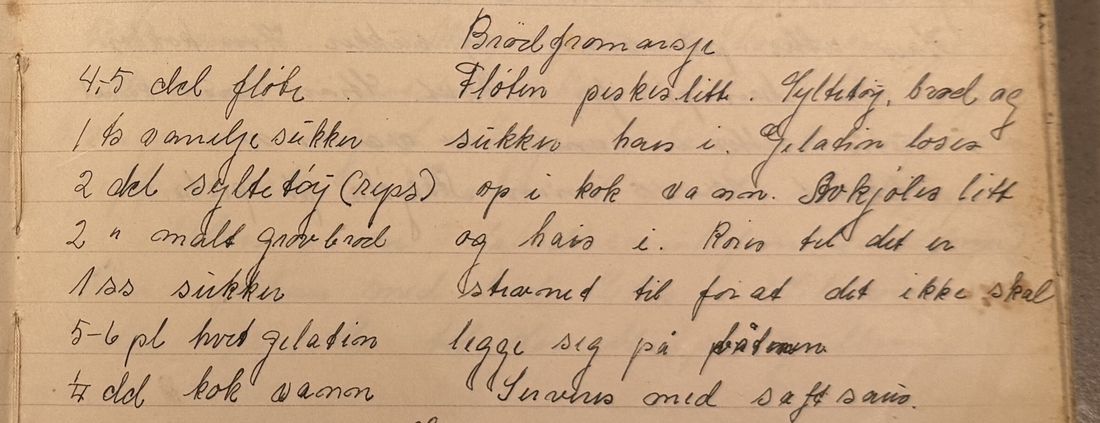 Brödfromarsje
4,5 del fløte
1 ts vanilje sukker
2 del syltetöy (rips)
2 " malt grovbröd
1 ss sukker
5-6 pl hvet gelatin
1/4 del kok vann
Flöten peskes litt. Syltetöy, bröd og
sukker haes i. Gelatin löses
op i kok vann. Avkjöles litt
og haes i. Röres til det er
stivned til for at det ikke skal
legge seg på båtnen
Serveres med saft saus.